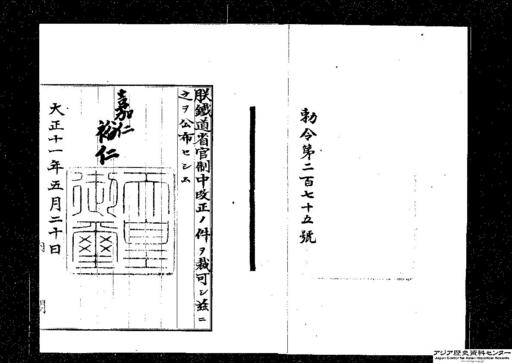 勅令第二百七十五號
朕鐵道省官制中改正ノ件ヲ裁可シ茲ニ
之ヲ公布セシム
嘉仁
裕仁
天皇御璽
大正十一年五月二十日
内閣
アジア歴史資料センター
Japan Center for Asian Historical Records